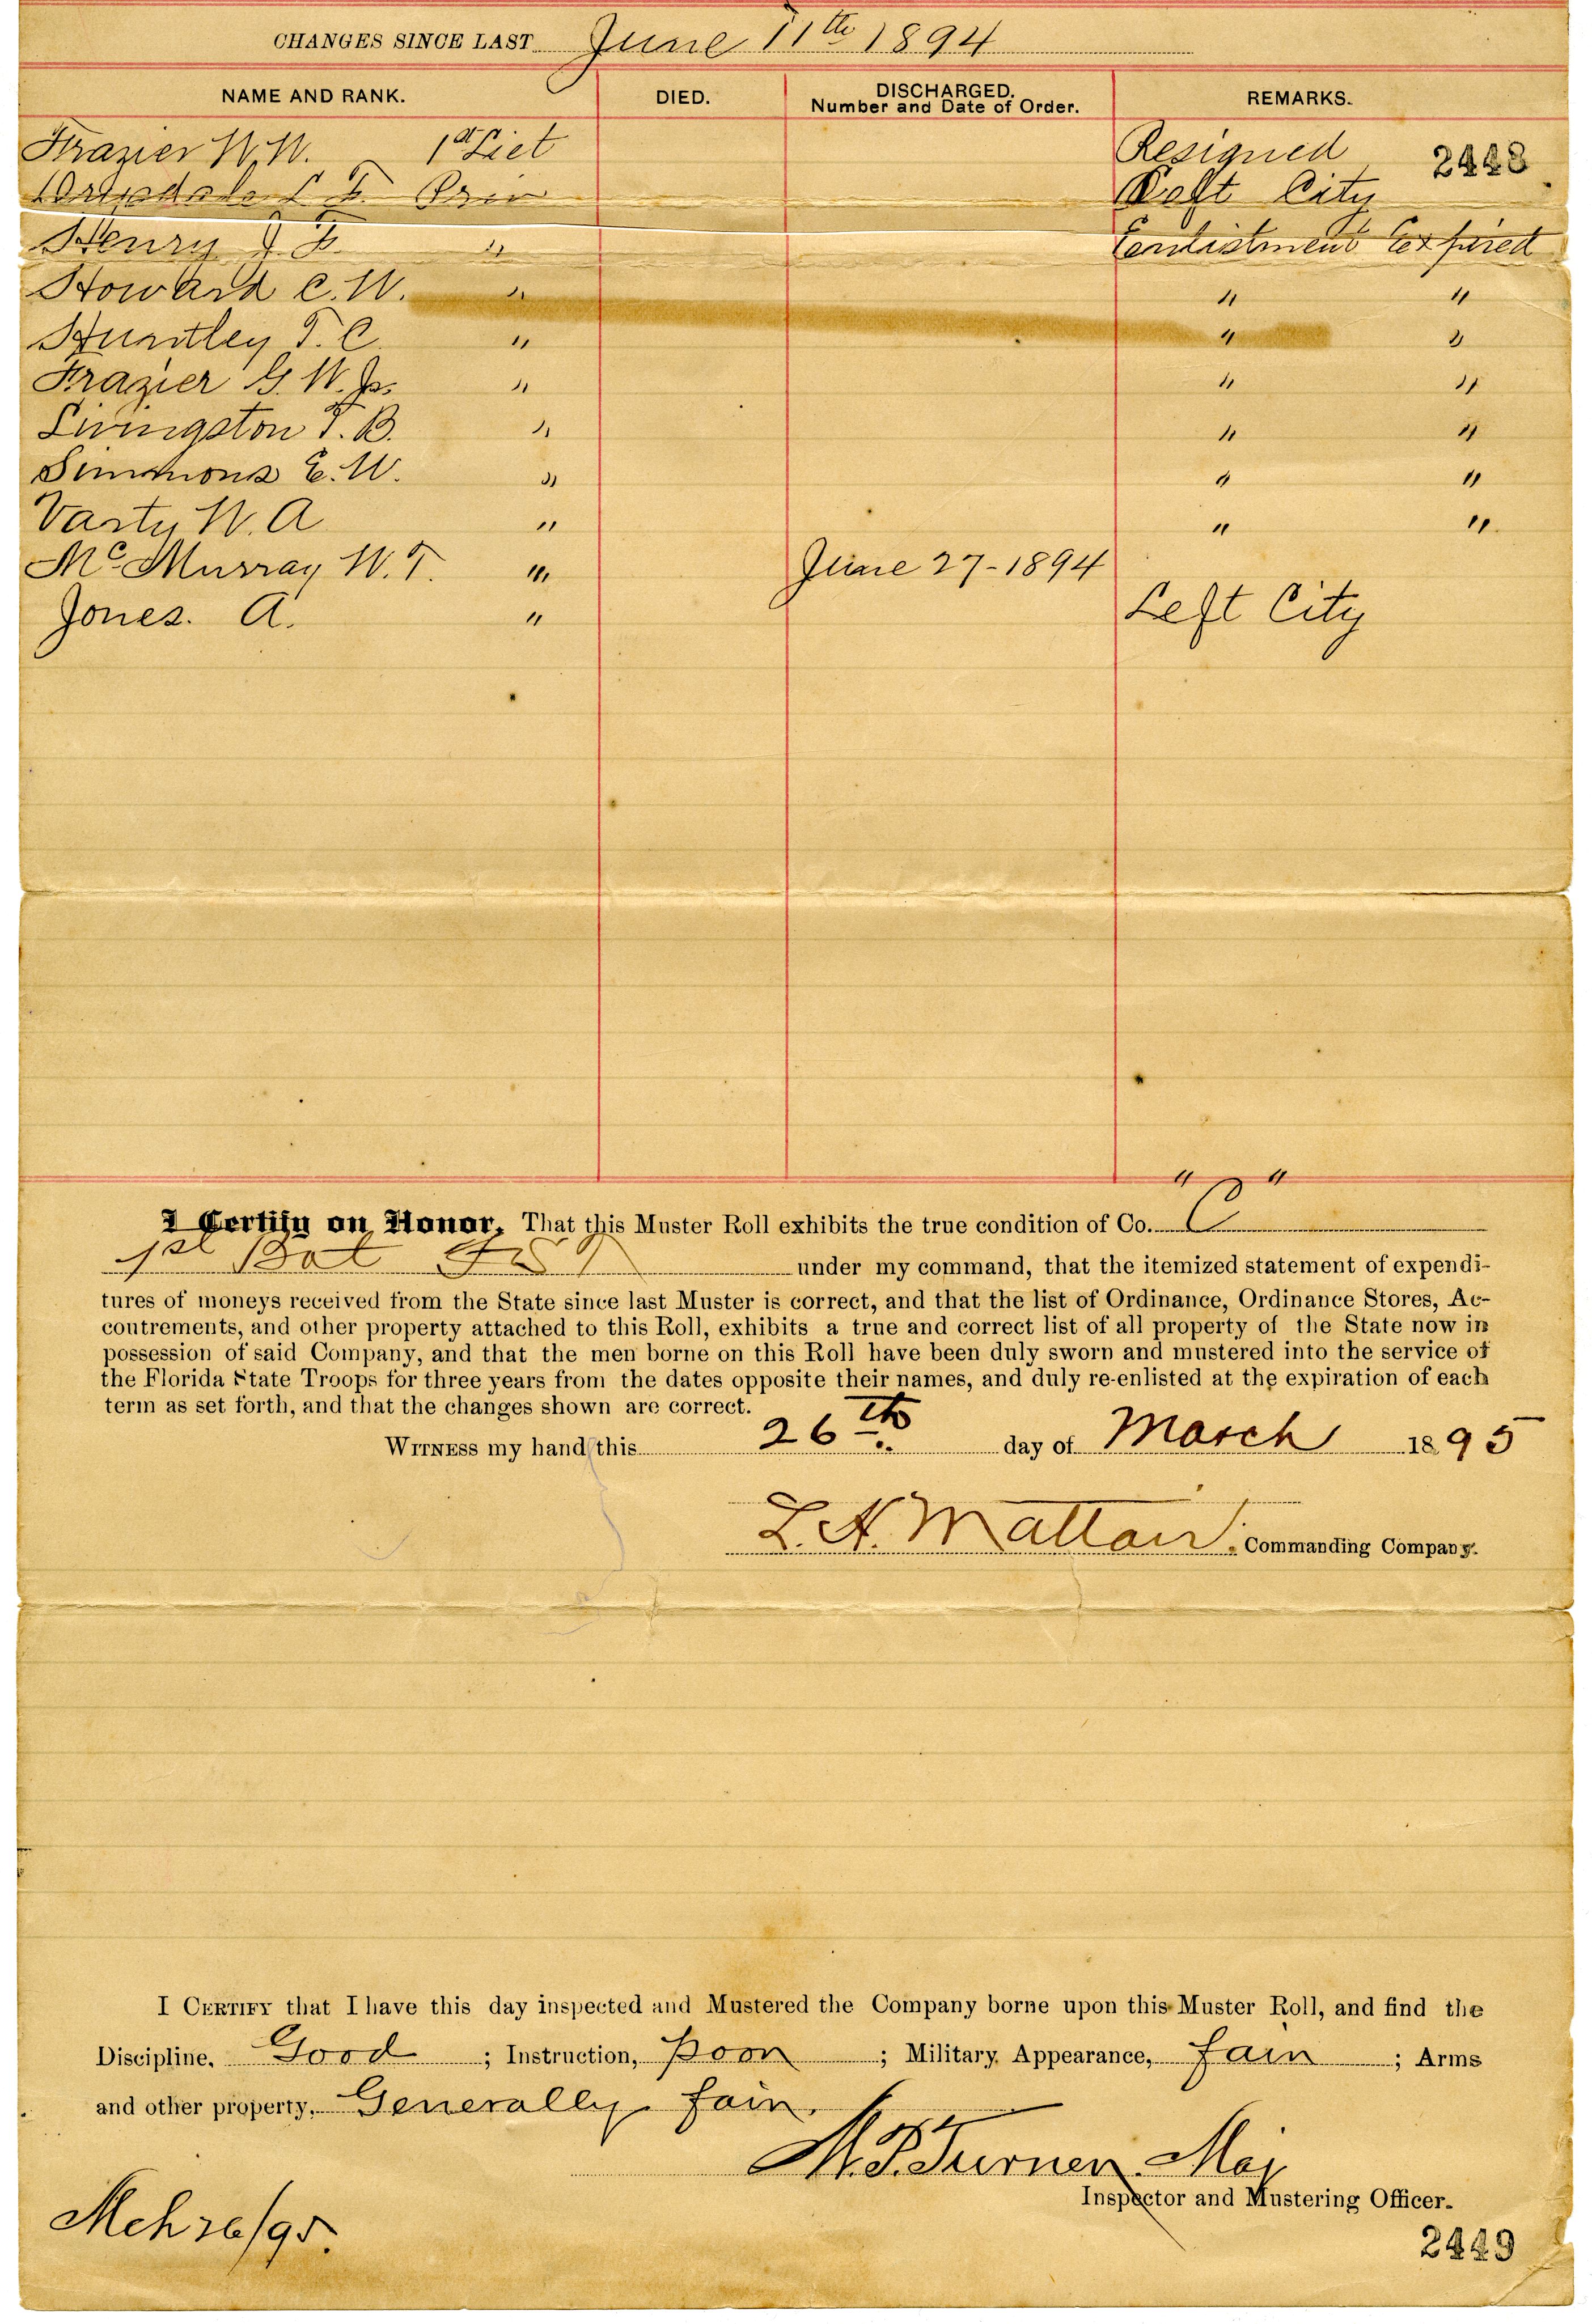 CHANGES SINCE LAST June 11th 1894
NAME AND RANK. DIED. DISCHARGED. Number and Date of Order. REMARKS.
Frazier W.W. 1st Liet Resigned 2448
Drysdale L F. Priv Left City
Henry J. F. " Enlistment Expired
Howard C.W. " " "
Huntley T. C. " " "
Frazier G. W. Jr. " " "
Livingston T. B. " " "
Simmons E. W. " " "
Varty W. A " " "
McMurray W. T. " June 27-1894
Jones. A. " Left City
I Certify on Honor, That this Muster Roll exhibits the true condition of Co. "C"
1st Bat F S T under my command, that the itemized statement of expendi-
tures of moneys received from the State since last Muster is correct, and that the list of Ordinance, Ordinance Stores, Ac-
coutrements, and other property attached to this Roll, exhibits a true and correct list of all property of the State now in
possession of said Company, and that the men borne on this Roll have been duly sworn and mustered into the service of
the Florida State Troops for three years from the dates opposite their names, and duly re-enlisted at the expiration of each
term as set forth, and that the changes shown are correct.
WITNESS my hand this 26th day of March 1895
L. H. Mattair. Commanding Company.
I CERTIFY that I have this day inspected and Mustered the Company borne upon this Muster Roll, and find the
Discipline, Good ; Instruction, poor ; Military Appearance, fair ; Arms
and other property, Generally fair.
W. P. Turner. Maj
Inspector and Mustering Officer.
Mch 26/95.
2449